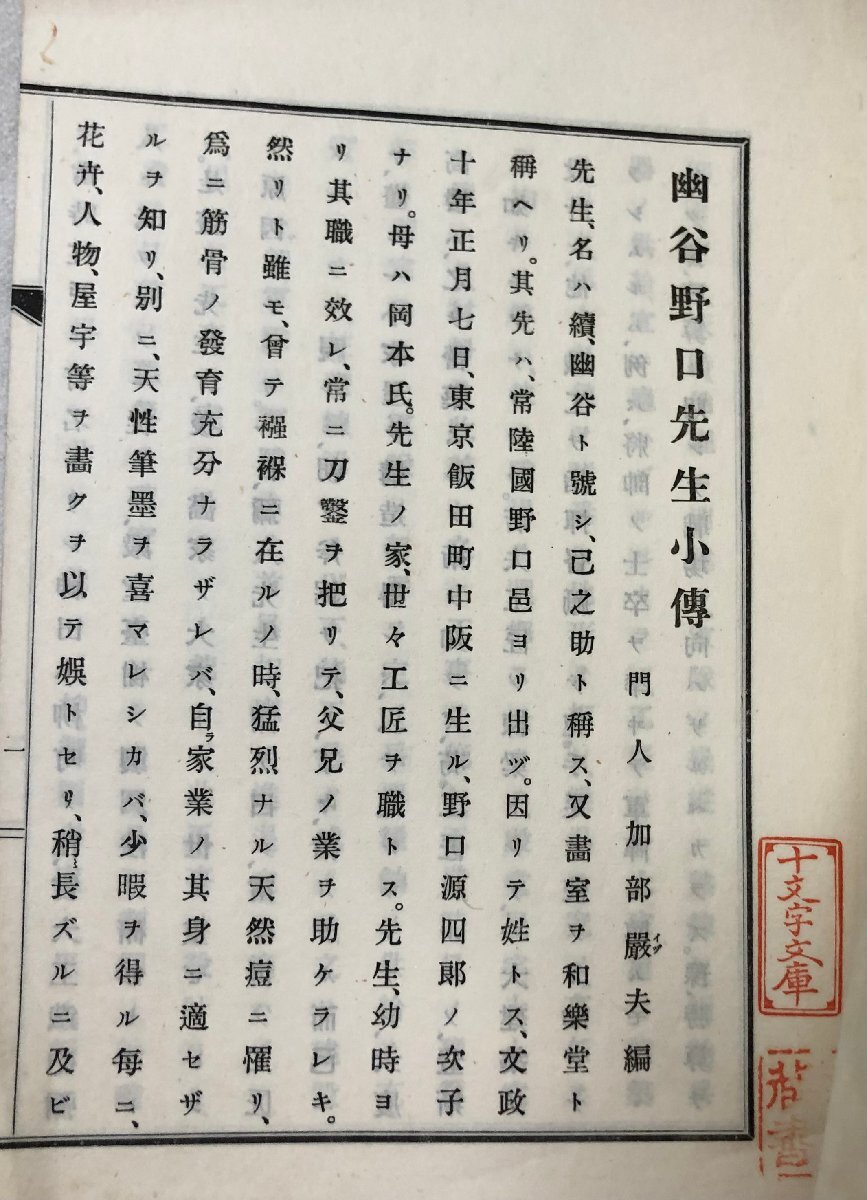 幽谷野口先生小傳
門人 加部嚴夫編
イヅ
先生、名ハ續、幽谷ト號シ、己之助ト稱ス、又畵室ヲ和樂堂ト
稱ヘリ。其先ハ、常陸國野口邑ヨリ出ヅ。因リテ姓トス、文政
十年正月七日、東京飯田町中阪ニ生ル、野口源四郎ノ次子
ナリ。母ハ岡本氏。先生ノ家、世々工匠ヲ職トス。先生、幼時ヨ
リ其職ニ效レ、常ニ刀鑿ヲ把リテ、父兄ノ業ヲ助ケラレキ。
然リト雖モ、曾テ襁褓ニ在ルノ時、猛烈ナル天然痘ニ罹リ、
爲ニ筋骨ノ發育充分ナラザレバ、自ラ家業ノ其身ニ適セザ
ルヲ知リ、別ニ、天性筆墨ヲ喜マレシカバ、少暇ヲ得ル每ニ、
花卉、人物、屋宇等ヲ畵クヲ以テ娯トセリ、稍〻長ズルニ及ビ
一
十文字文庫